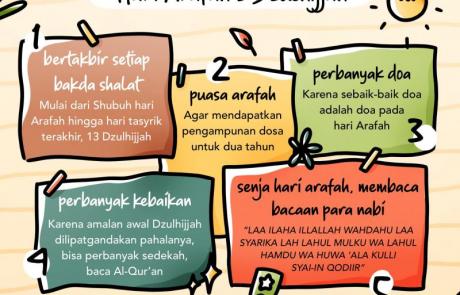 Hari Arafah 9 Dzulhijjah
1
bertakbir setiap
bakda shalat
Mulai dari Shubuh hari
Arafah hingga hari tasyrik
terakhir, 13 Dzulhijjah
2
puasa arafah
Agar mendapatkan
pengampunan dosa
untuk dua tahun
perbanyak doa
Karena sebaik-baik doa
adalah doa pada
hari Arafah
3
perbanyak kebaikan
Karena amalan awal Dzulhijjah
dilipatgandakan pahalanya,
bisa perbanyak sedekah,
baca Al-Qur'an
4
senja hari arafah, membaca
bacaan para nabi
"LAA ILAHA ILLALLAH WAHDAHU LAA
SYARIKA LAH LAHUL MULKU WA LAHUL
HAMDU WA HUWA 'ALA KULLI
SYAI-IN QODIIR"
5